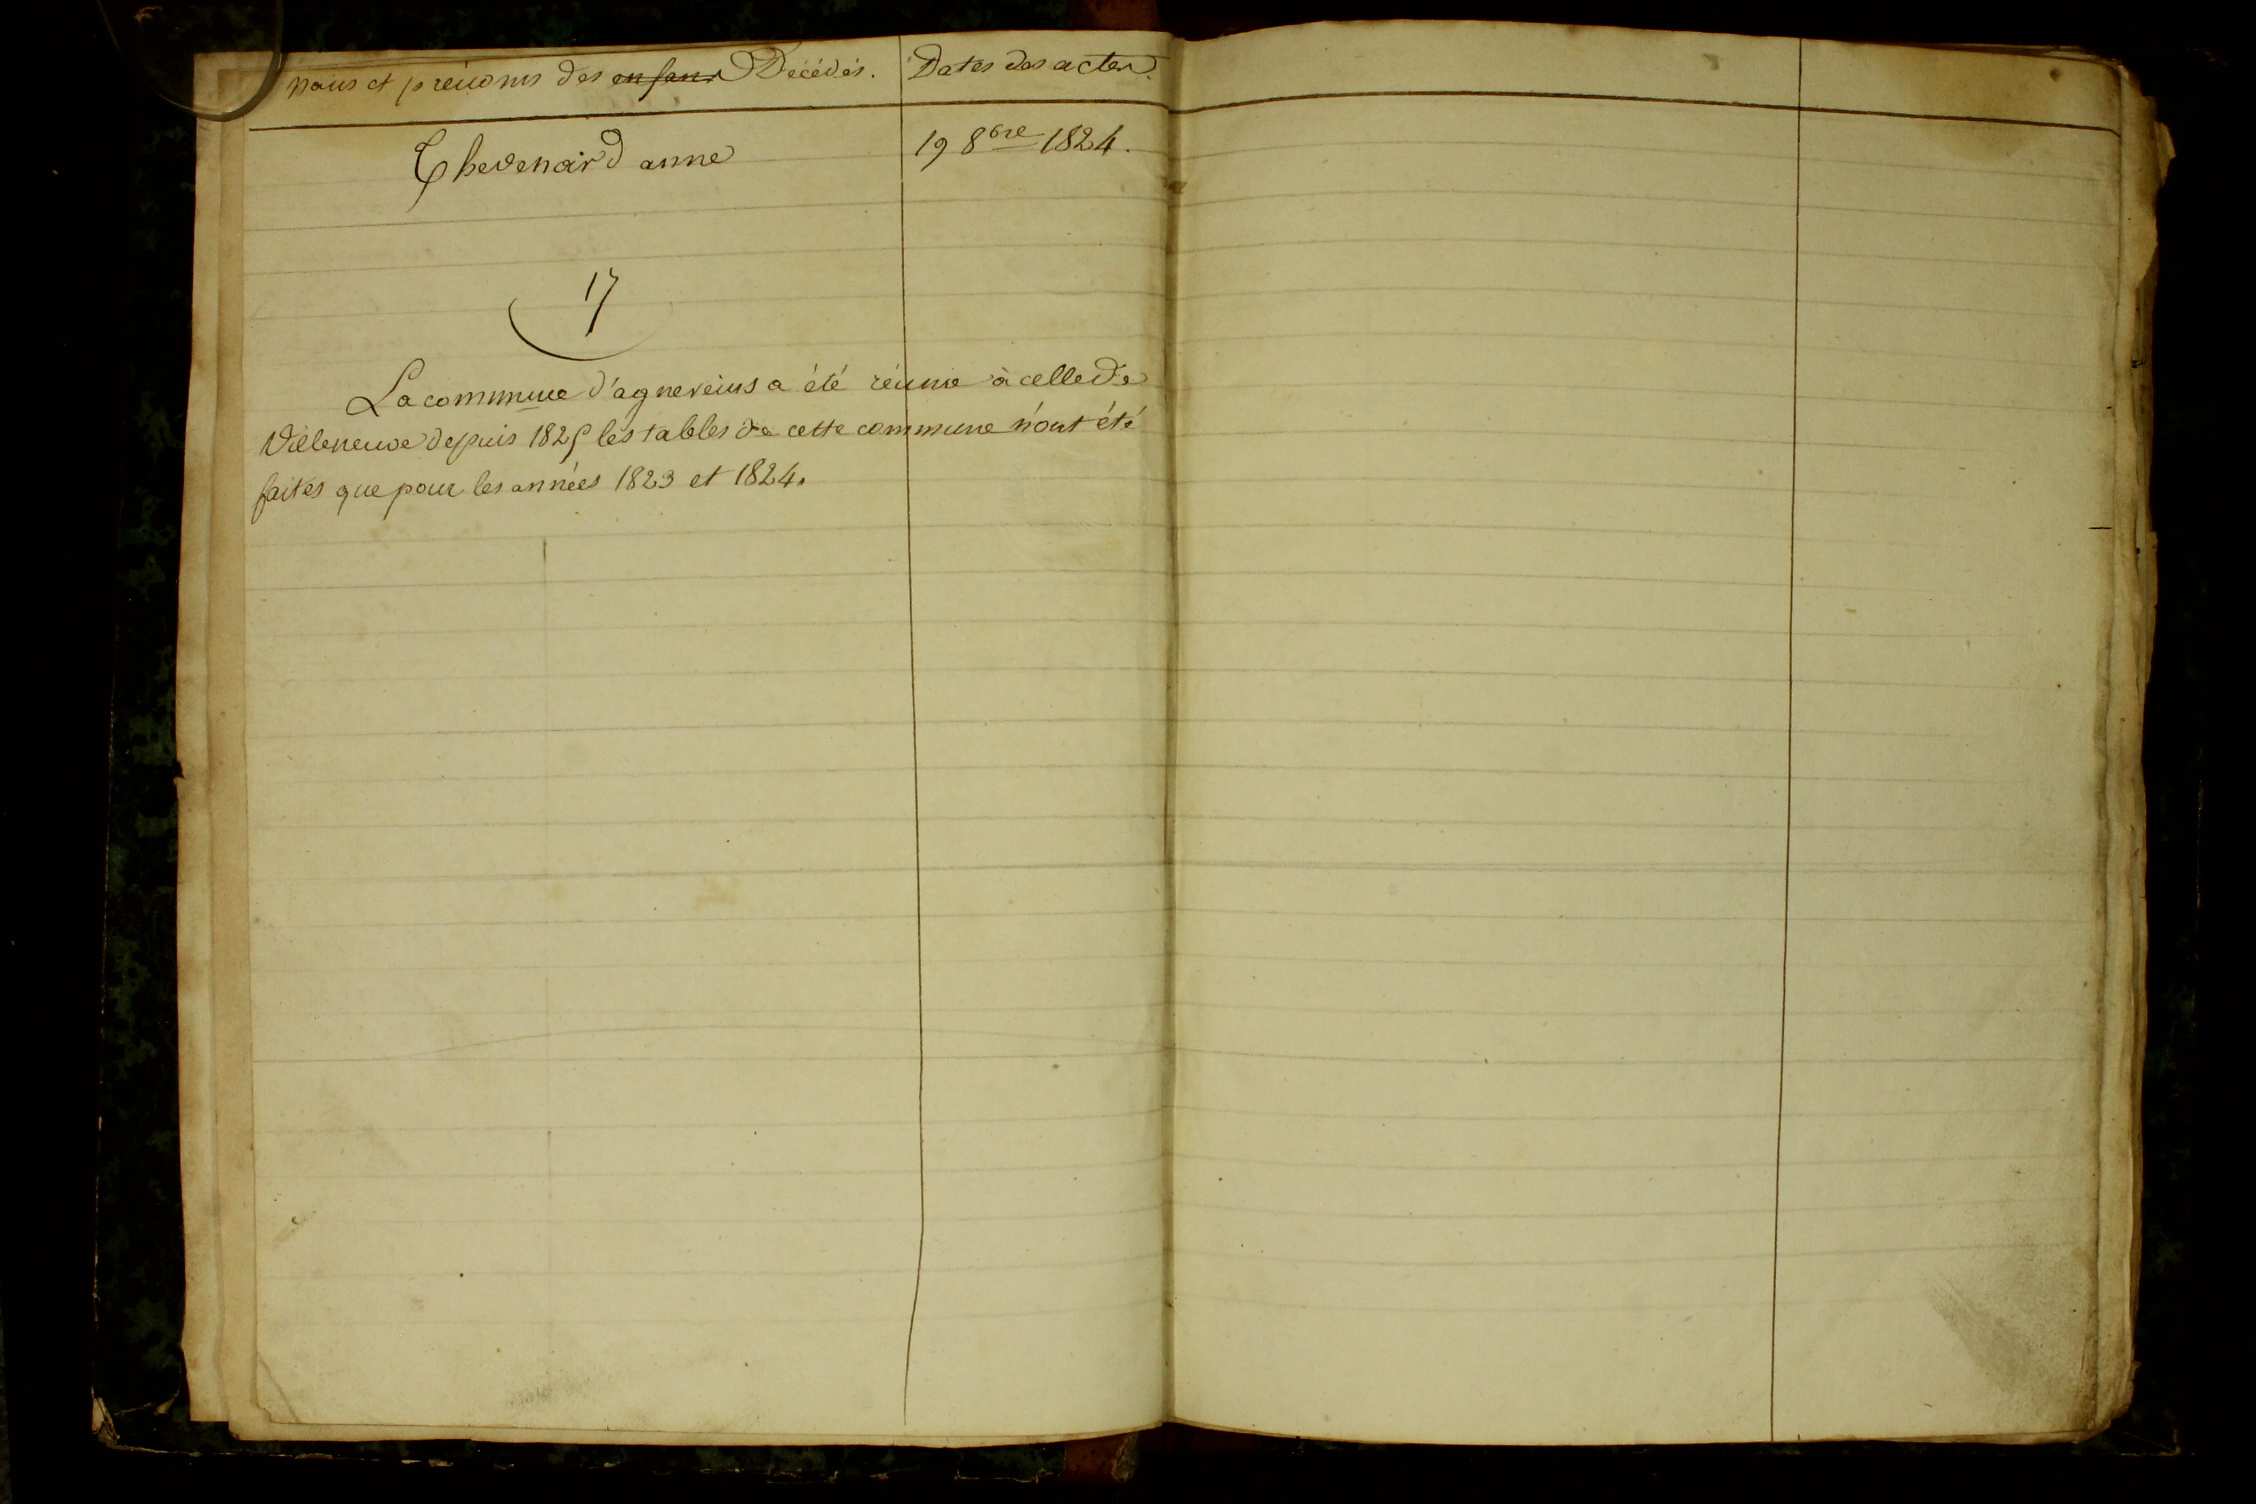 noms et prénoms des enfans Décédés. Dates des actes.
Thevenard anne 19 8bre 1824.
17
La commune d'agnereins a été réunie à celle de
Villeneuve depuis 1825 les tables de cette commune n'ont été
faites que pour les années 1823 et 1824.